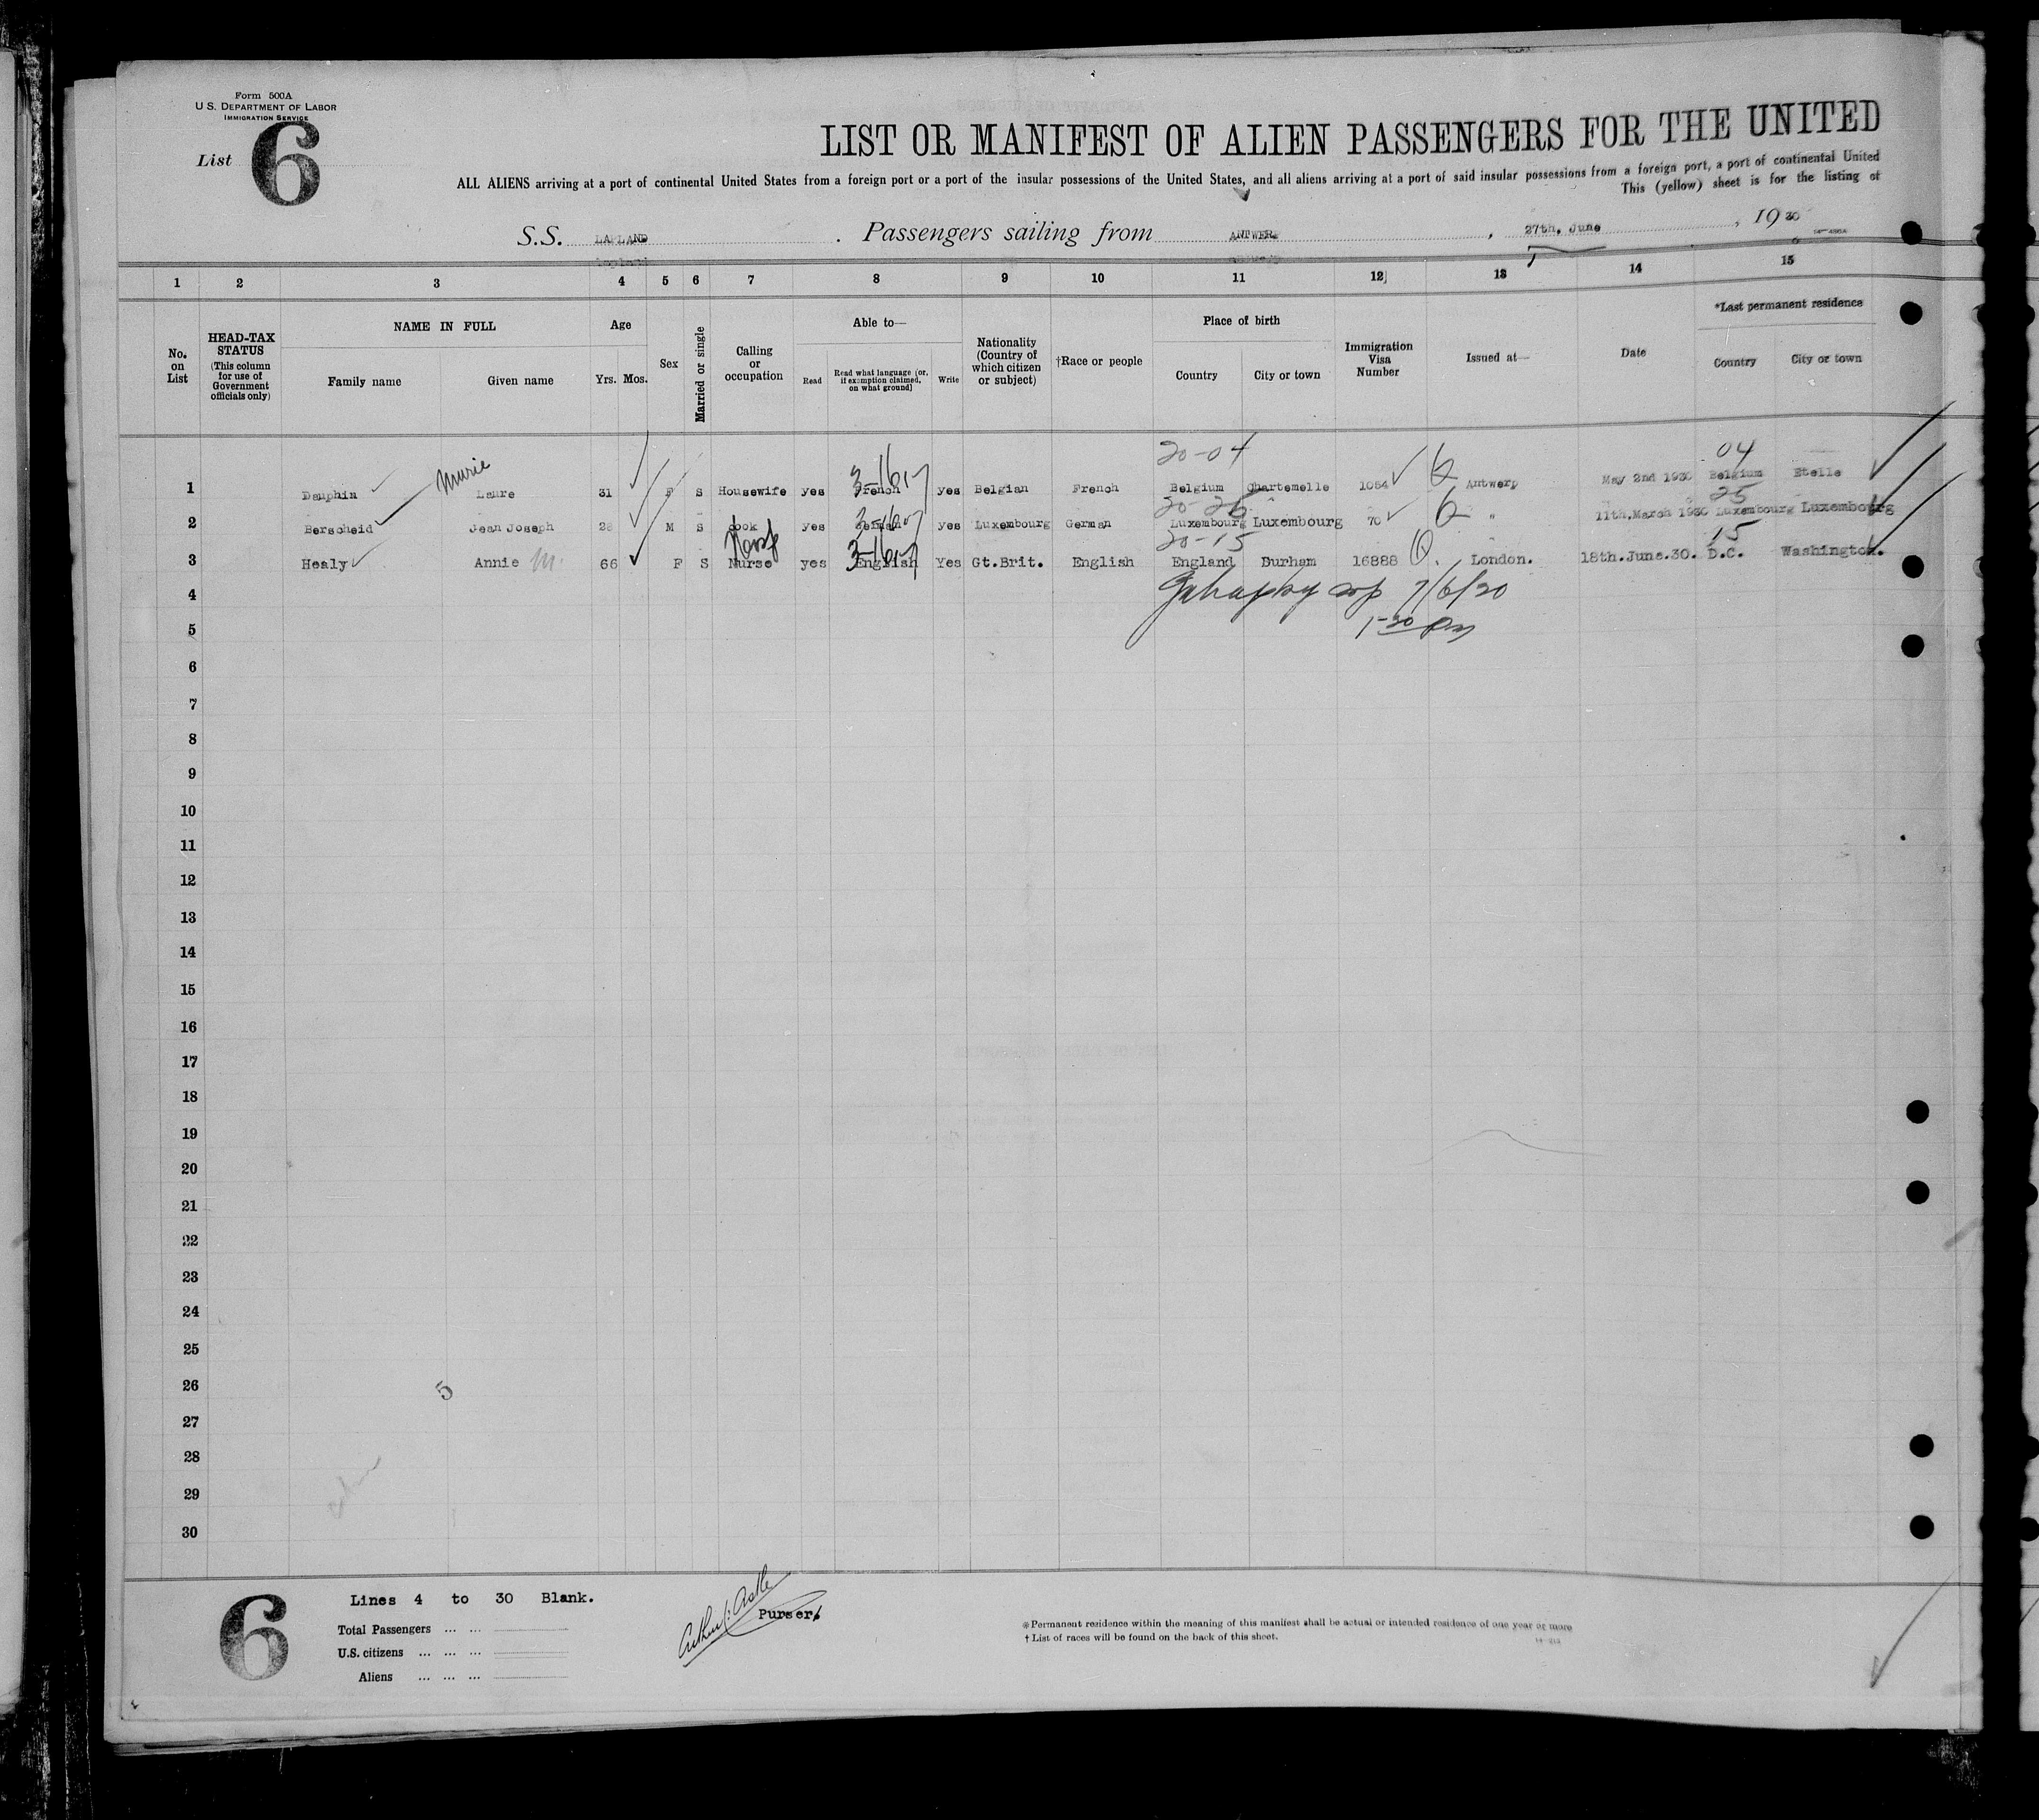 Form 500A
U S. DEPARTMENT OF LABOR
IMMIGRATION SERVICE
List 6
LIST OR MANIFEST OF ALIEN PASSENGERS FOR THE UNITED
ALL ALIENS arriving at a port of continental United States from a foreign port or a port of the insular possessions of the United States, and all aliens arriving at a port of said insular possessions from a foreign port, a port of continental United
This (yellow) sheet is for the listing of
S.S. LAPLAND . Passengers sailing from ANTWERP , 27th, June , 19 30
1 2 3 4 5 6 7 8 9 10 11 12 13 14 15
No. on List
HEAD-TAX STATUS (This column for use of Government officials only)
NAME IN FULL
Family name Given name
Age
Yrs. Mos.
Sex
Married or single
Calling or occupation
Able to—
Read
Read what language (or, if exemption claimed, on what ground)
Write
Nationality (Country of which citizen or subject)
†Race or people
Place of birth
Country City or town
Immigration Visa Number
Issued at—
Date
*Last permanent residence
Country City or town
20-04 04
1 Dauphin Marie Laure 31 F S Housewife yes French yes Belgian French Belgium Chartemelle 1054 Antwerp May 2nd 1930 Belgium Etelle
20-25 25
2 Berscheid Jean Joseph 28 M S cook yes German yes Luxembourg German Luxembourg Luxembourg 70 " 11th.March 1930 Luxembourg Luxembourg
20-15 15
3 Healy Annie M. 66 F S Nurse yes English Yes Gt.Brit. English England Durham 16888 London. 18th.June.30. D.C. Washington.
4 7/6/30
5 1-30 Pm
6
7
8
9
10
11
12
13
14
15
16
17
18
19
20
21
22
23
24
25
26 5
27
28
29
30
6
Lines 4 to 30 Blank.
Total Passengers ... ...
U.S. citizens ... ... ...
Aliens ... ... ...
Purser.
*Permanent residence within the meaning of this manifest shall be actual or intended residence of one year or more
† List of races will be found on the back of this sheet.